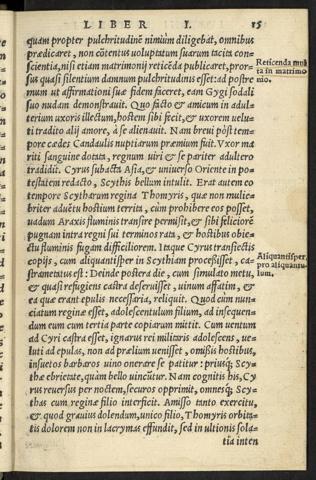 LIBER I. 15
quam propter pulchritudinē nimiùm diligebāt, omnibus
prædicaret, non cōtentus uoluptatum suarum tacita con=
scientia, nisi etiam matrimonij reticēda publicaret, pror=
sus quasi silentium damnum pulchritudinis esset: ad postre
mum ut affirmationi suæ fidem faceret, eam Gygi sodali
suo nudam demonstrauit. Quo facto & amicum in adul=
terium uxoris illectum, hostem sibi fecit, & uxorem uelu=
ti tradito alij amore, à se alienauit. Nam breui pòst tem=
pore cædes Candaulis nuptiarum præmium fuit. Vxor ma
riti sanguine dotata, regnum uiri & se pariter adultero
tradidit. Cyrus subacta Asia, & uniuerso Oriente in po=
testatem redacto, Scythis bellum intulit. Erat autem eo
tempore Scytharum regina Thomyris, quæ non mulie=
briter aduētu hostium territa, cùm prohibere eos posset,
uadum Araxis fluminis transire permisit, & sibi feliciorē
pugnam intra regni sui terminos rata, & hostibus obie=
ctu fluminis fugam difficiliorem. Itaque Cyrus transiectis
copijs, cum aliquantisper in Scythiam processisset, ca=
strametatus est: Deinde postera die, cum simulato metu,
& quasi refugiens castra deseruisset, uinum affatim, &
ea quæ erant epulis necessaria, reliquit. Quod cùm nun=
ciatum reginæ esset, adolescentulum filium, ad insequen=
dum eum cum tertia parte copiarum mittit. Cum uentum
ad Cyri castra esset, ignarus rei militaris adolescens, ue=
luti ad epulas, non ad prælium uenisset, omissis hostibus,
insuetos barbaros uino onerare se patitur: priusq; Scy=
thæ ebrietate, quàm bello uincūtur. Nam cognitis his, Cy
rus reuersus per noctem, securos opprimit, omnesq; Scy=
thas cum reginæ filio interficit. Amisso tanto exercitu,
& quod grauius dolendum, unico filio, Thomyris orbita=
tis dolorem non in lacrymas effundit, sed in ultionis sola=
tia inten
Reticenda mul
ta in matrimo
nio.
Aliquantisper,
pro aliquantu=
lum.